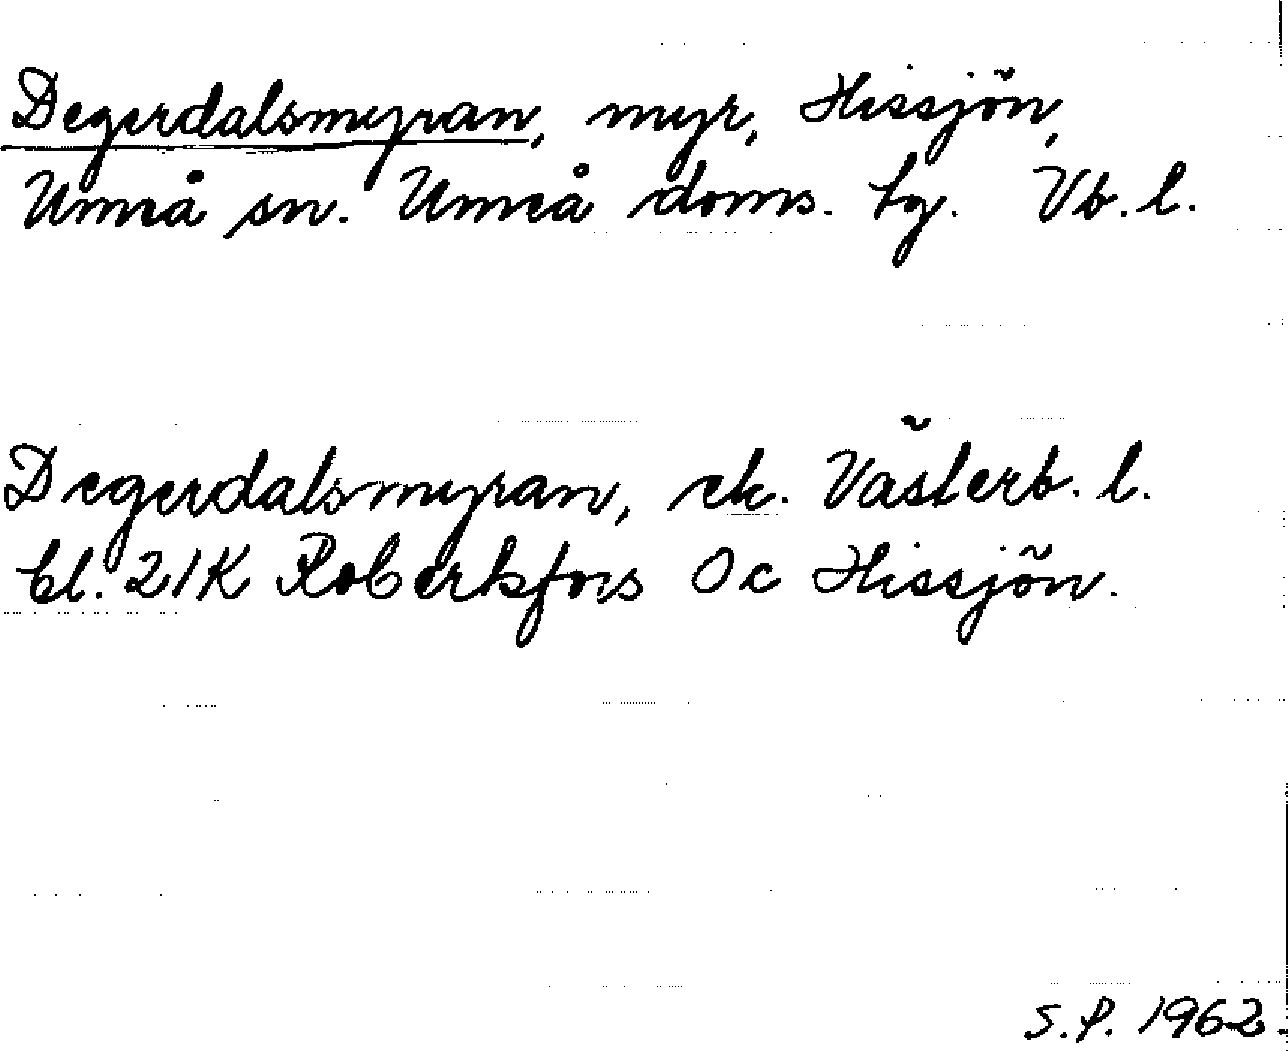 Degerdalsmyran, myr, Hissjön,
Umeå sn. Umeå doms. tg. Vb. l.
Degerdalsmyran, ek. Västerb. l.
bl. 21K Robertsfors Oc Hissjön.
S.P. 1962